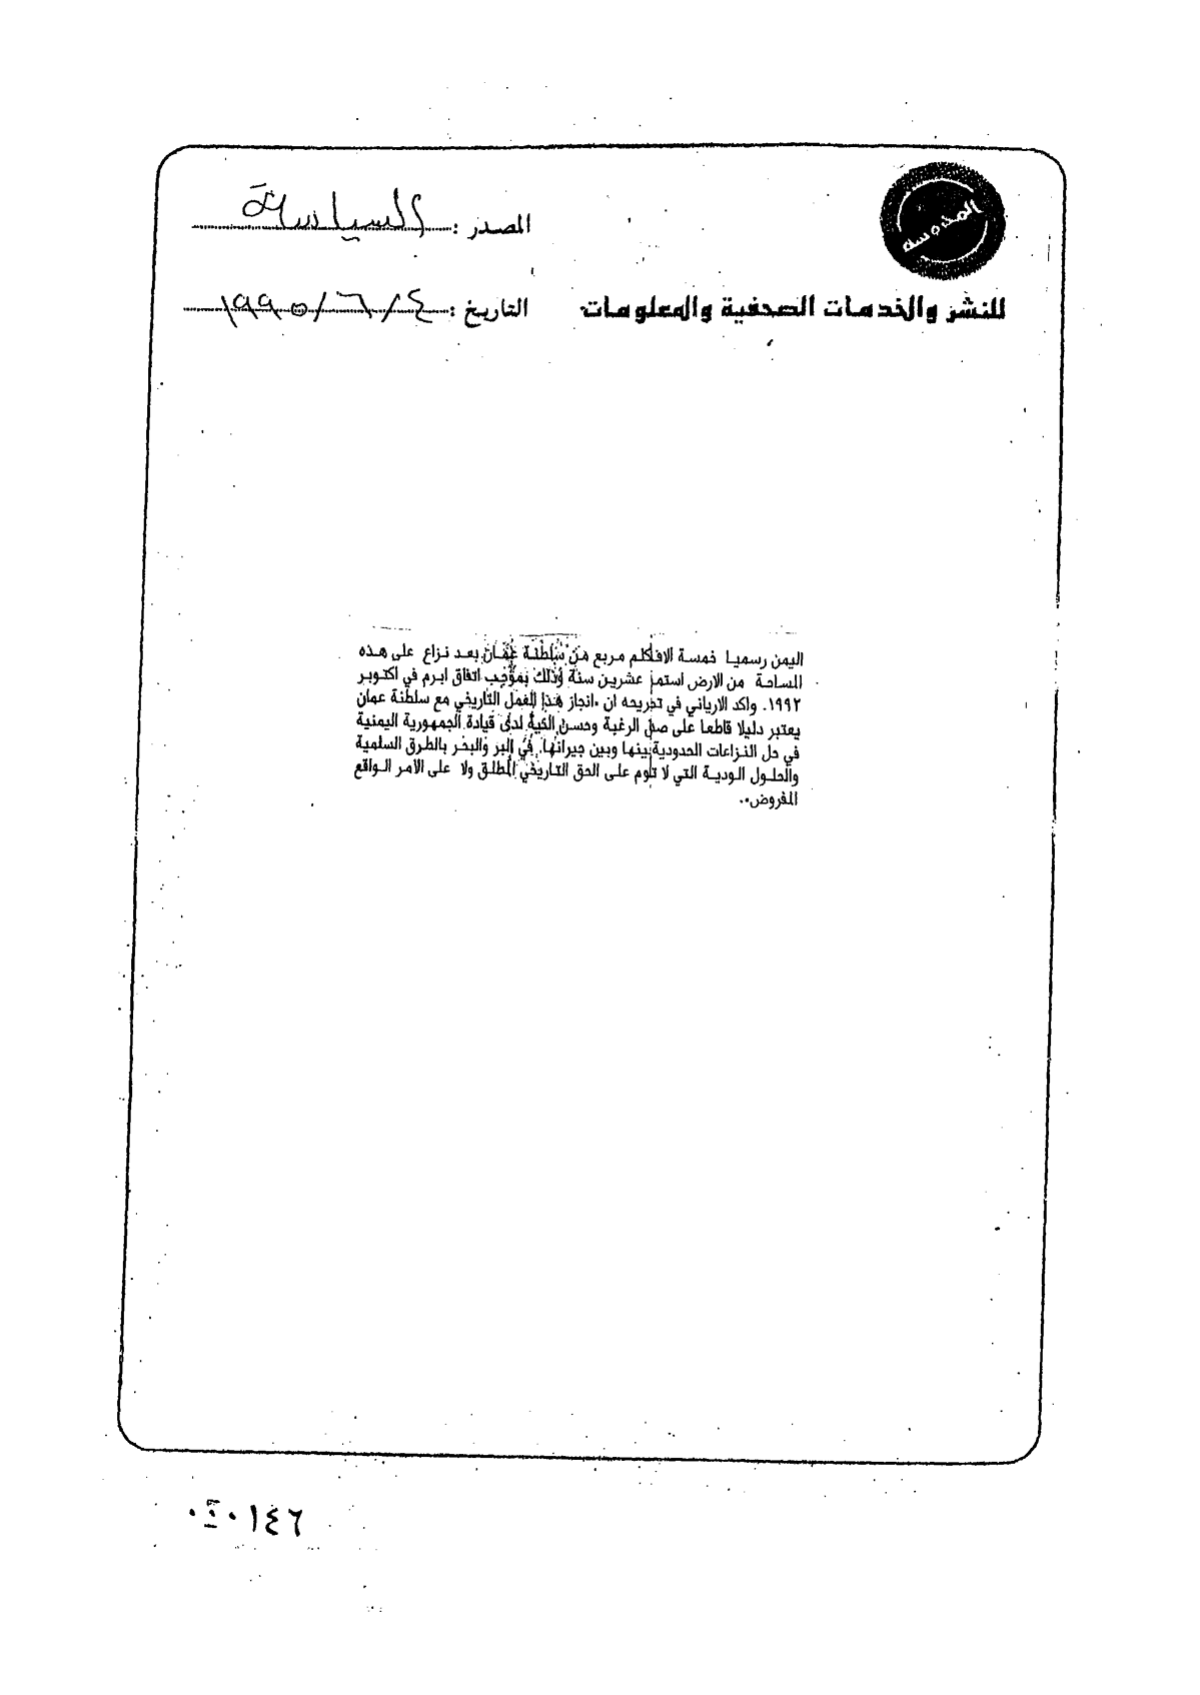 المحروسة
المصدر : السياسة
للنشر والخدمات الصحفية والمعلومات
التاريخ : ٤ / ٦ / ١٩٩٥
اليمن رسميا خمسة الاف كلم مربع من سلطنة عمان بعد نزاع على هذه
المساحة من الارض استمر عشرين سنة وذلك بموجب اتفاق ابرم في اكتوبر
١٩٩٢. واكد الارياني في تصريحه ان «انجاز هذا العمل التاريخي مع سلطنة عمان
يعتبر دليلا قاطعا على صدق الرغبة وحسن النية لدى قيادة الجمهورية اليمنية
في حل النزاعات الحدودية بينها وبين جيرانها، في البر والبحر بالطرق السلمية
والحلول الودية التي لا تقوم على الحق التاريخي المطلق ولا على الامر الواقع
المفروض».